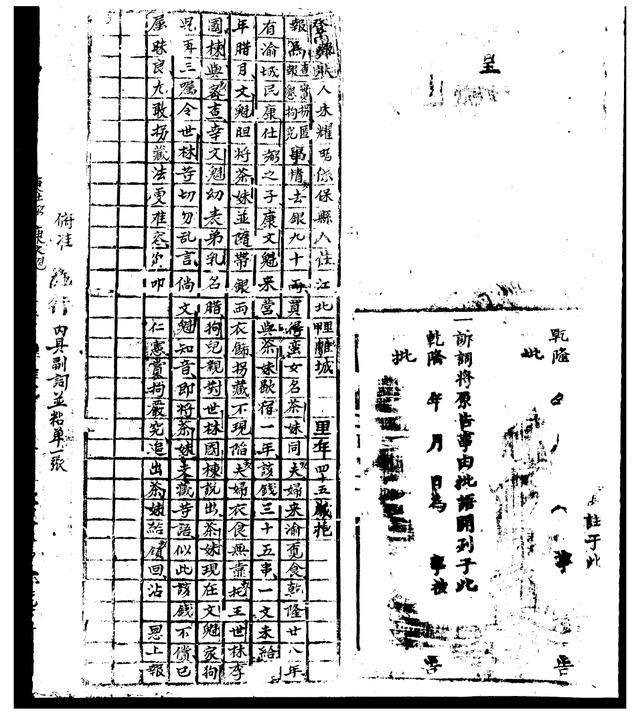 呈
註于此
乾隆
批
一訴詞將原告事由批語開列于此
乾隆 年 月 日為 事被 告
批
人朱耀明係保縣人住江北 離城 里年四十五歲抱
報為查實拐匿報懇拘究事情去銀九十兩買得蛮女名茶妹同夫婦來渝覓食乾隆廿八年
有渝城民康仕弼之子康文魁來當與茶妹歇宿一年該錢三十五串一文未給
年腊月文魁胆將茶妹並隨帶銀兩衣飾拐藏不現陷夫婦衣食無靠托王世林李
國棟與 查幸文魁幼表弟乳名腊狗兒親對世林國棟說出茶妹現在文魁家狗
児再三囑令世林等切勿乱言倘文魁知音即將茶妹支藏等語似此該錢不償已
屬昧良尤敢拐藏法更难容 叩 仁憲賞拘嚴究追出茶妹給領回沾 恩上報
俯准 施行 內具副詞並粘单一張